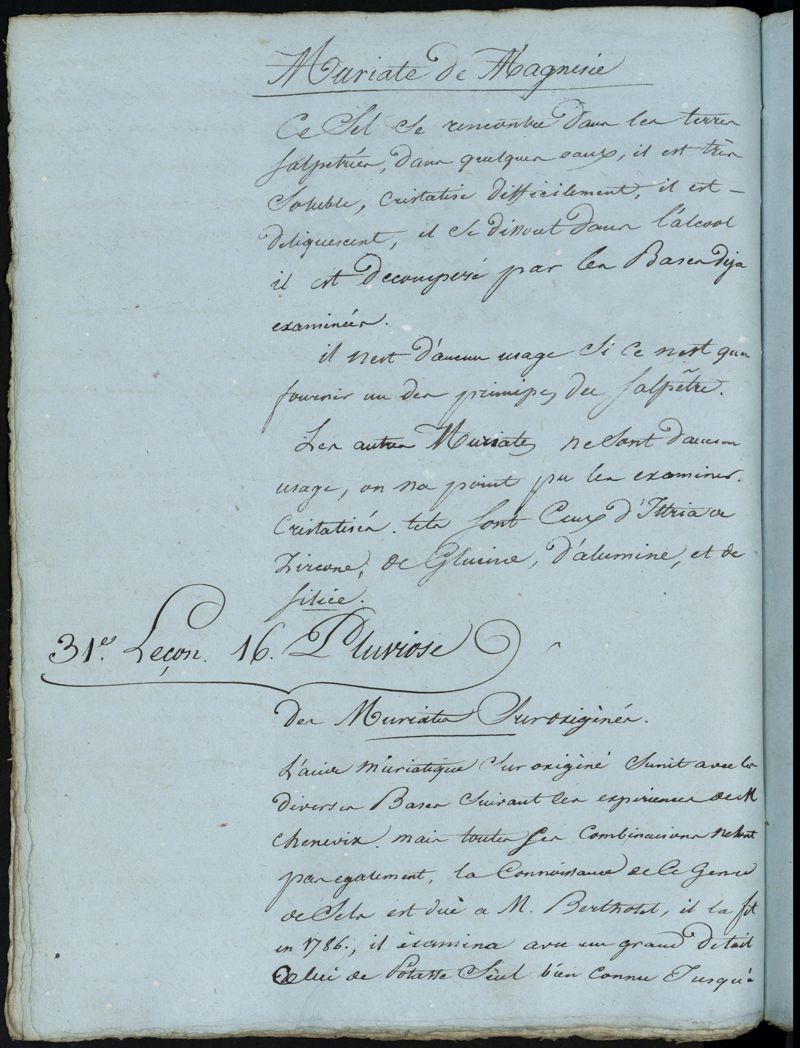 Muriate de Magnesie
Ce Sel se rencontre dans les terres
salpetriés, dans quelques eaux, il est très
soluble, cristalise difficilement, il est -
deliquescent, il se dissout dans l'alcool
il est decomposé par les Bases deja
examinées.
il n'est d'aucun usage si ce n'est que
fournir un des principes du salpêtre.
Les autres Muriates ne sont d'aucun
usage, on na point pu les examiner.
Cristalisés. tels sont Ceux d'Ittria de
Zircone, de Glucine, d'alumine, et de
silice.
31e. Leçon. 16. Pluviose
des Muriates Suroxigènés.
L'acide muriatique Suroxigèné s'unit avec les
diverses Bases suivant les experiences de M
chenevix. mais toutes ses combinaisons ne sont
pas egalement, la Connoissance de ce Genre
de Sels est due a M. Berthollet, il la fit
en 1786., il examina avec un grand detail
Celui de Potasse Seul bien connu Jusqu'à